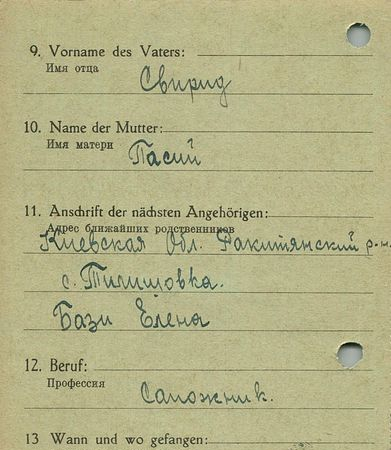 9. Vorname des Vaters:
Имя отца
Свирид
10. Name der Mutter:
Имя матери
Пасий
11. Anschrift der nächsten Angehörigen:
Адрес ближайших родственников
Киевская Обл. Ракитянский р-н
с. Телешовка.
Бази Елена
12. Beruf:
Профессия
Сапожник.
13 Wann und wo gefangen: